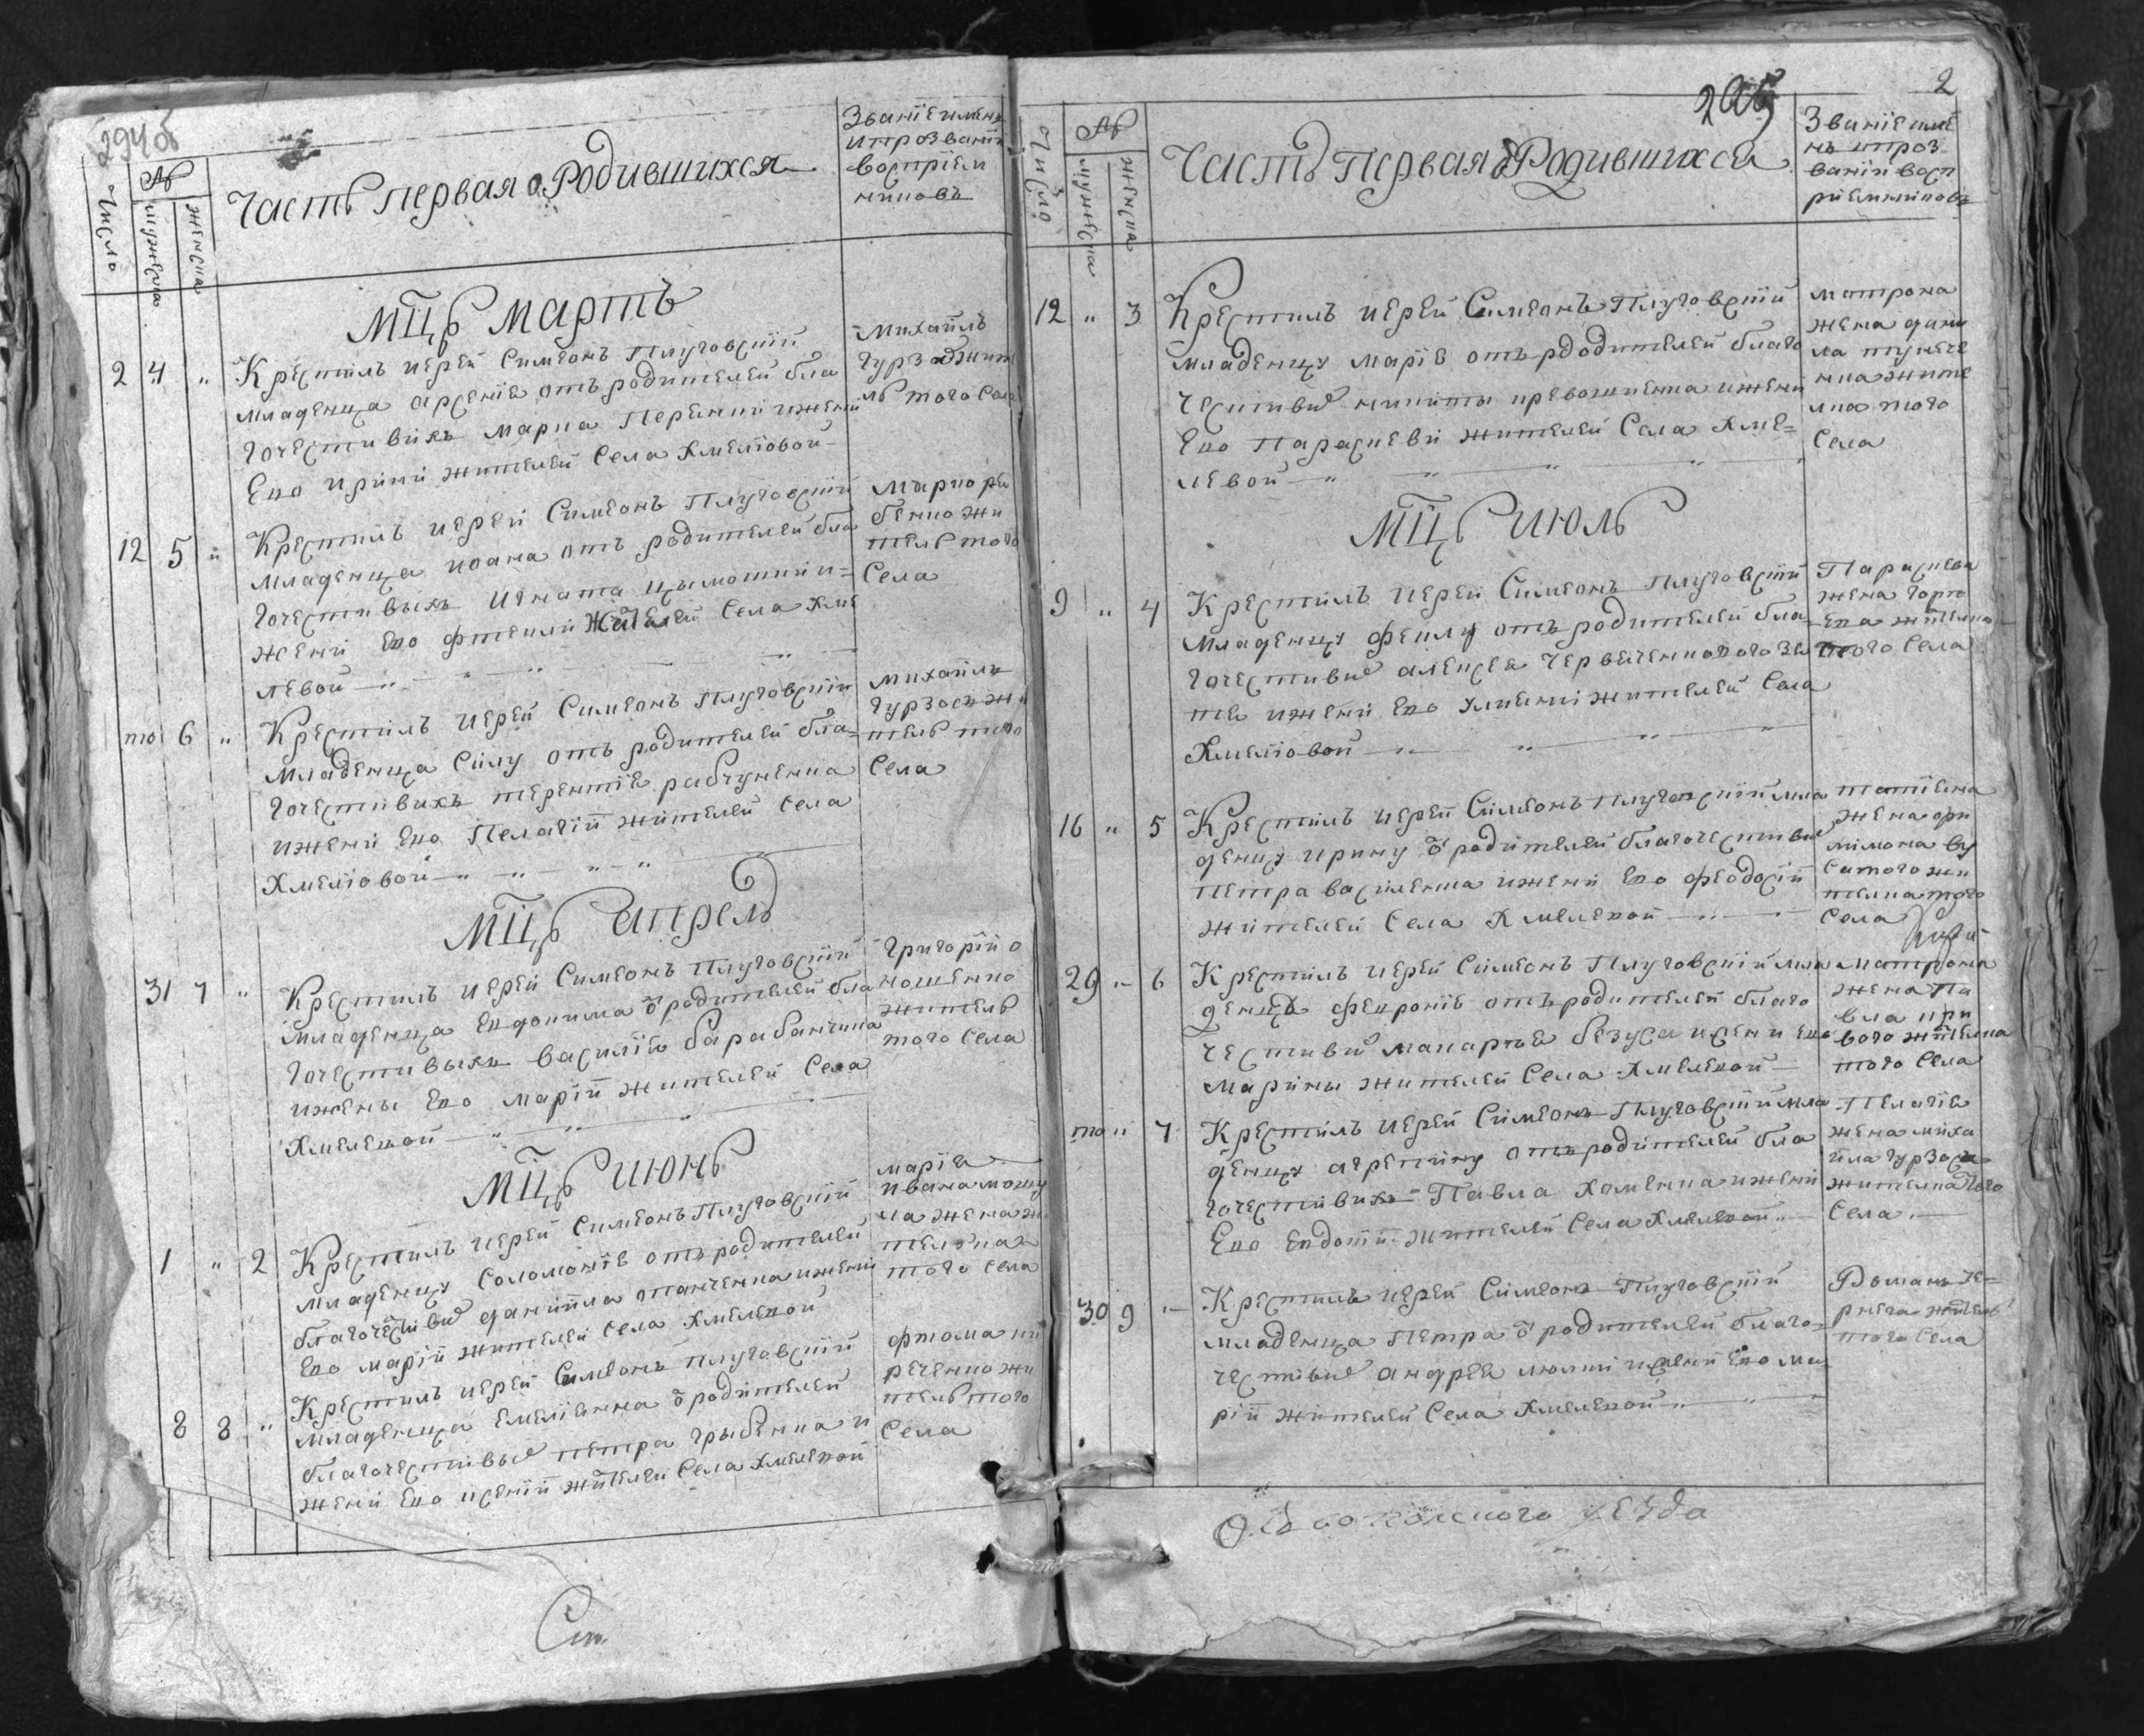 294 об
Число
№
мужеска
женска
Часть Первая о Родившихся
Званїе имень
и прозванїе
воспрїем
никовъ
МЦъ Мартъ
2 4 "
Крестилъ иерей Симеонъ Плуговскїй
младенца арсенїе отъ родителей бла
гочестивихъ Марка Перкини и жени
Его ирини жителей Села Хмелїовой
Михаилъ
Гурза жит
ль того Села
12 5 "
Крестилъ иерей Симеонъ Плуговскїй
младенца иоана отъ родителей бла
гочестивыхъ Игната
жени Его жителей Села Хме
левой
Марко ре
бенко жи
тель того
Села
то 6 "
Крестилъ иерей Симеонъ Плуговскїй
младенца Силу отъ родителей бла=
гочестивихъ терентїе рабчуненка
и жени Его Пелагїй жителей Села
Хмелїовой
михаилъ
гурзоскж
тель того
Села
МЦъ апрель
31 7 "
Крестилъ иерей Симеонъ Плуговскїй
младенца Евдокима ѿ родителей бла
гочестивыхъ василїе барабанчика
и жены Его марїй жителей Села
Хмелевой
григорїй о
ношенко
житель
того Села
МЦъ июнь
1 " 2
Крестилъ иерей Симеонъ Плуговскїй
младенцу Соломонїе отъ родителей
благочестивых данїила и жени
Его марїй жителей Села Хмелевой
марїя
ивана
ла жена жи
телька
того Села
8 8 "
Крестилъ иерей Симеонъ Плуговскїй
младенца Емелїенна ѿ родителей
благочестивых петра грыбенка и
жени Его ксенїй жителей Села Хмелевой
фтома ки
реченко жи
тель того
Села
2
295
число
№
мужеска
женска
Часть Первая о Родившихся
Званїе име
нъ и проз
ванїй восп
рїемниковъ
12 " 3
Крестилъ иерей Симеонъ Плуговскїй
младенцу марїе отъ родителей благо
честивых никиты кревошиенка и жени
Его Параскеви жителей Села Хме=
левой
матрона
жена дани
ла
нка жите
лка того
Села
МЦъ июль
9 " 4
Крестилъ иерей Симеонъ Плуговскїй
младенцу феклу отъ родителей бла
гочестивых алексея червяченкового зя
тя и жени Его жителей Села
Хмелїовой
Параскева
жена
жителка
того Села
16 " 5
Крестилъ иерей Симеонъ Плуговскїй мла
денцу ирину ѿ родителей благочестивых
петра василенка и жени Его феодосїй
жителей Села Хмелевой
татїена
жена фи
лимона бу
сатого жи
телка того
Села
29 " 6
Крестилъ иерей Симеонъ Плуговскїй мла
денца февронїе отъ родителей благо
честивых макарѣя безуса и жени его
марины жителей Села Хмелевой
матрона
жена Па
вла кри
вого жителка
того Села
то " 7
Крестилъ иерей Симеонъ Плуговскїй мла
денцу агрепину отъ родителей бла
гочестивихъ Павла Хоменка и жени
Его Евдотїй жителей Села Хмелевой
Пелагїя
жена миха
ила гурзоск
жителка того
Села
30 9 "
Крестилъ иерей Симеонъ Плуговскїй
младенца Петра ѿ родителей благо=
честивых андрея и жени Его ма
рїй жителей Села Хмелевой
Романъ че=
рнега житель
того Села
уезда